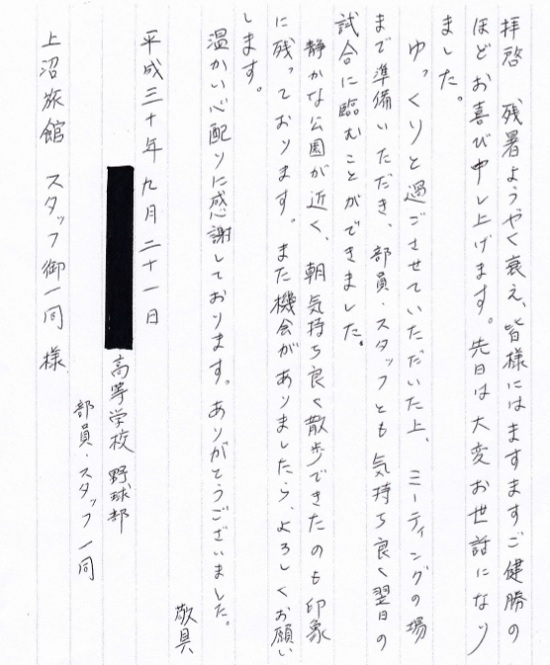 拝啓　残暑ようやく衰え、皆様にはますますご健勝の
ほどお喜び申し上げます。先日は大変お世話になり
ました。
ゆっくりと過ごさせていただいた上、ミーティングの場
まで準備いただき、部員・スタッフとも気持ち良く翌日の
試合に臨むことができました。
静かな公園が近く、朝気持ち良く散歩できたのも印象
に残っております。また機会がありましたら、よろしくお願い
します。
温かい心配りに感謝しております。ありがとうございました。
敬具
平成三十年九月二十一日
高等学校 野球部
部員・スタッフ一同
上沼旅館　スタッフ御一同 様